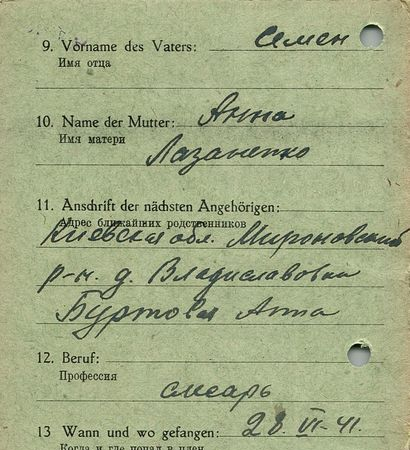 9. Vorname des Vaters: Семен
Имя отца
10. Name der Mutter: Анна
Имя матери
Лазаненко
11. Anschrift der nächsten Angehörigen:
Адрес ближайших родственников
Киевская обл. Мироновский
р-н. д. Владиславовка
Буртовая Анна
12. Beruf:
Профессия
слесарь
13 Wann und wo gefangen: 28. VI-41.
Когда и где попал в плен